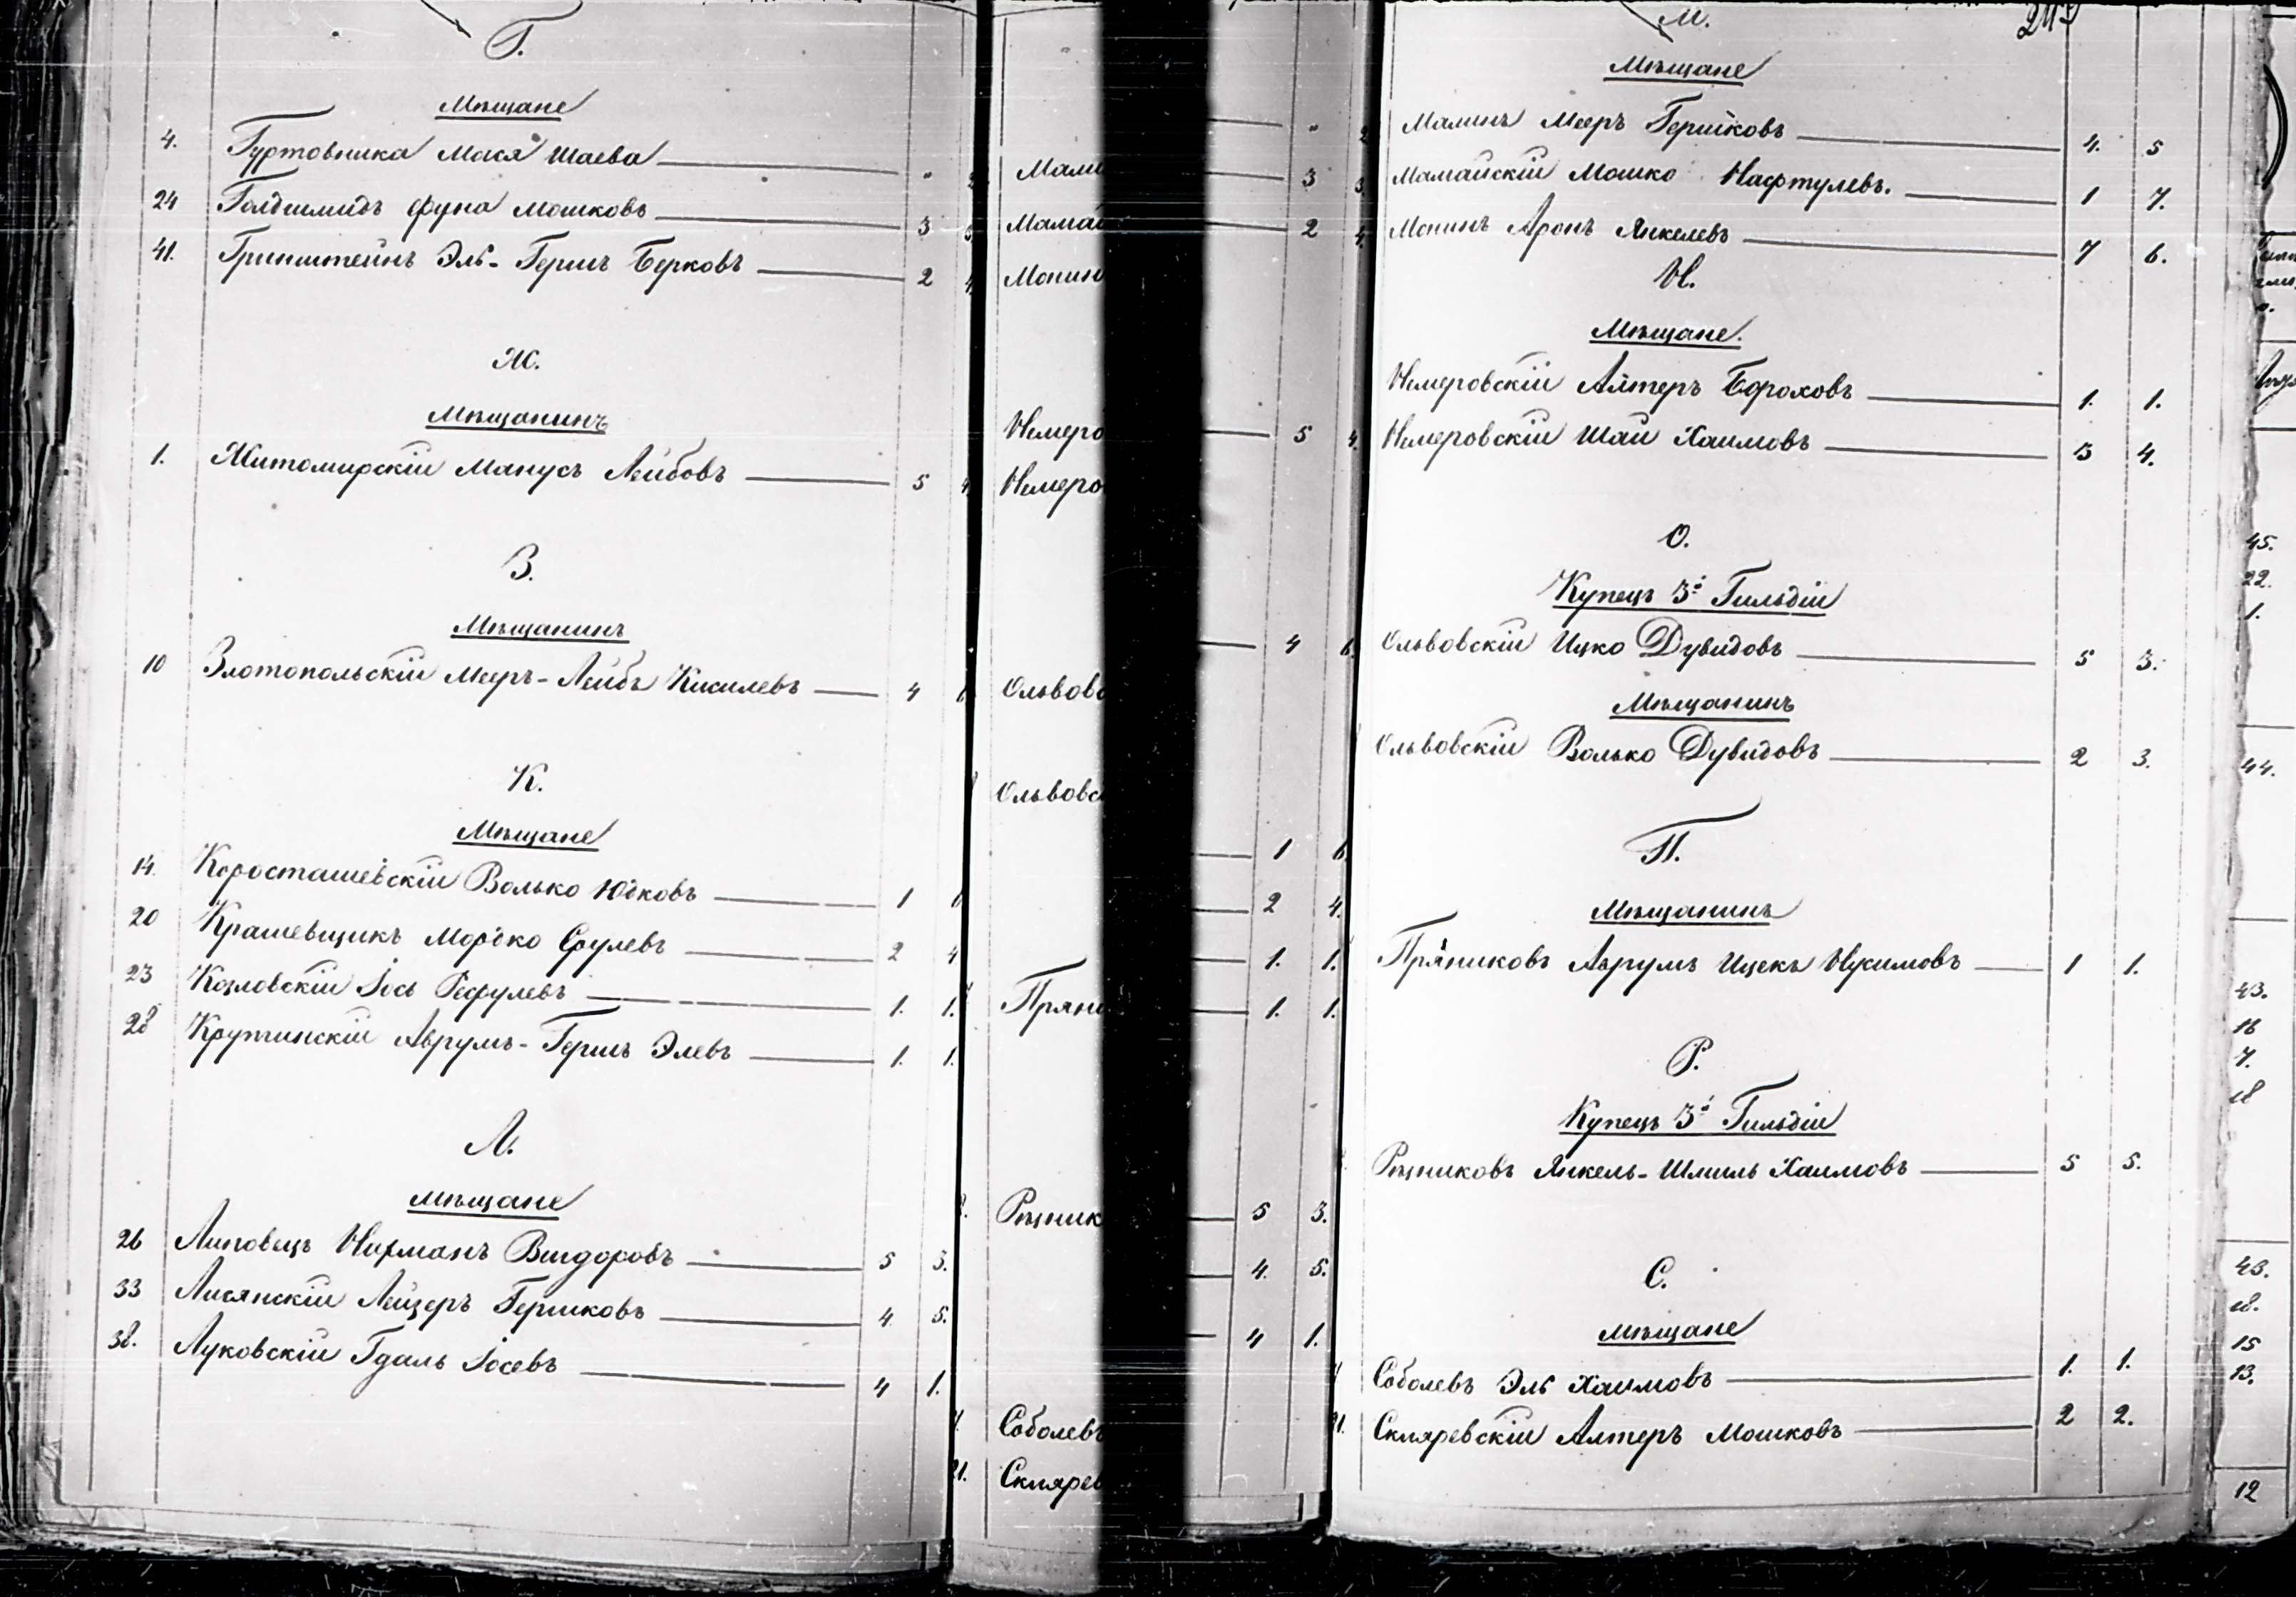 Г.
Мѣщане
4. Гуртовника Мася Шаева " 2
24 Голдшмидъ Фуна Мошковъ 3 3.
41. Гринштейнъ Эль-Гершъ Берковъ 2 4.
Ж.
Мѣщанинъ
1. Житомирскій Манусъ Лейбовъ 5 4.
З.
Мѣщанинъ
10 Златопольскій Мееръ-Лейбъ Кисилевъ 4 6.
К.
Мѣщане
14. Коросташевскій Волько Юдковъ 1 6.
20 Крашевщикъ Мордко Срулевъ 2 4.
23 Козловскій Іось Рефулевъ 1. 1.
28 Крутинскій Аврумъ-Гершъ Элевъ 1. 1.
Л.
Мѣщане
26 Липовецъ Нахманъ Вигдоровъ 5 3.
33 Лисянскій Лейзеръ Гершковъ 4 5.
38. Луковскій Гдаль Іосевъ 4 1.
Мали
Мамай
Монин
Немеро
Немеро
Ольвовс
Ольвовс
Пряни
Рѣзник
Соболевъ
21. Скларев
" 2
3 3.
2 4.
5 4.
4 6.
1 6.
2 4.
1. 1.
1. 1.
5 3.
4. 5.
4 1.
М.
Мѣщане
Малинъ Мееръ Гершковъ 4. 5
Мамайскій Мошко Нафтулевъ. 1 7.
Монинъ Аронъ Янкелевъ 7 6.
Н.
Мѣщане.
Немеровскій Алтеръ Бороховъ 1. 1.
Немеровскій Шаи Хаимовъ 3 4.
О.
Купецъ 3й Гильдіи
Ольвовскій Ицко Дувидовъ 5 3.
Мѣщанинъ
Ольвовскій Волько Дувидовъ 2 3.
П.
Мѣщанинъ
Пряниковъ Аврумъ Ицекъ Нухимовъ 1 1.
Р.
Купецъ 3й Гильдіи
Рѣзниковъ Янкель-Шмиль Хаимовъ 5 5.
С.
Мѣщане
Соболевъ Эль Хаимовъ 1. 1.
21. Скларевскій Алтеръ Мошковъ 2 2.
45.
22.
1.
44.
43.
16
7.
18
43.
18.
15
13.
12